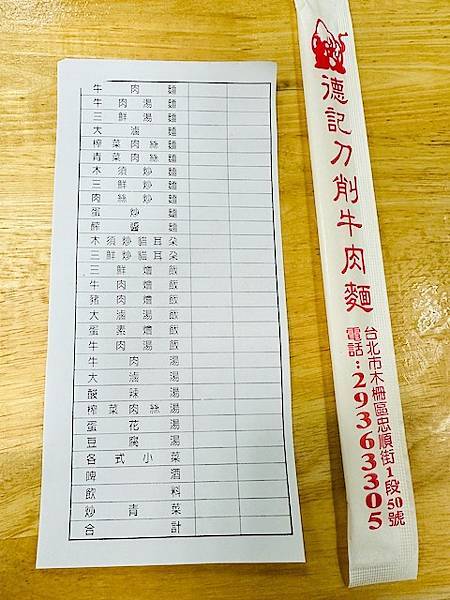 牛肉麵
牛肉湯麵
三鮮湯麵
大滷麵
榨菜肉絲麵
青菜肉絲麵
木須炒麵
三鮮炒麵
肉絲炒麵
蛋炒麵
酢醬麵
木須炒貓耳朵
三鮮炒貓耳朵
三鮮燴飯
牛肉燴飯
豬肉燴飯
大滷湯飯
蛋素燴飯
牛肉湯飯
牛肉湯
大滷湯
酸辣湯
榨菜肉絲湯
蛋花湯
豆腐湯
各式小菜
啤酒
飲料
炒青菜
合計
德記刀削牛肉麵
台北市木柵區忠順街1段50號
電話:29363305